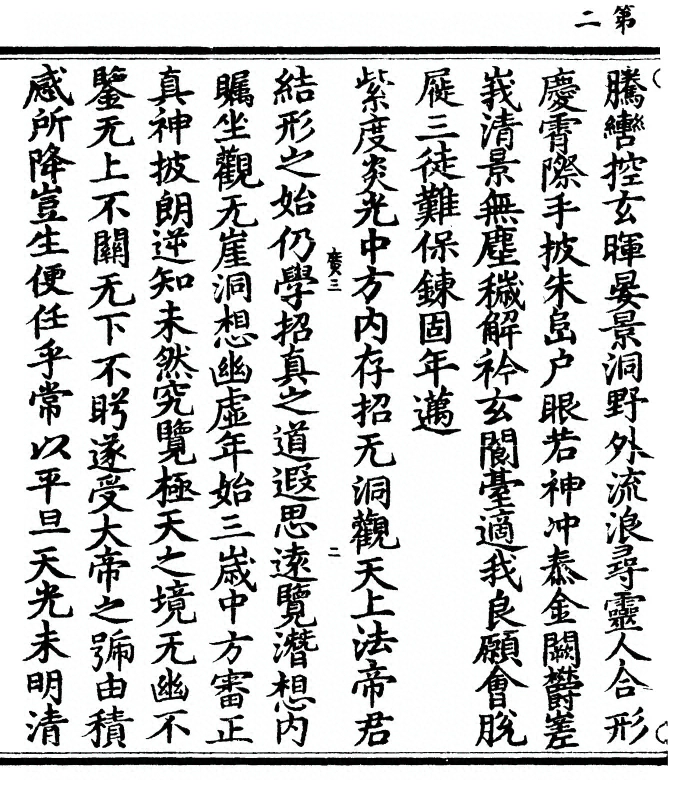 第二
騰轡控玄暉晏景洞野外流浪尋靈人合形
慶霄際手披朱島户眼若神冲忝金闕鬱嵳
峩清景無塵穢解衿玄閬臺適我良願會脫
屣三徒難保鍊固年邁
紫度炎光中方内存招无洞觀天上法帝君
廣三
二
結形之始仍學招真之道遐思逺覽潛想内
矚坐觀无崖洞想幽虛年始三歲中方審正
真神披朗逆知未然究覽極天之境无幽不
鑒无上不關无下不眄遂受大帝之號由積
感所降豈生便任乎常以平旦天光未明清